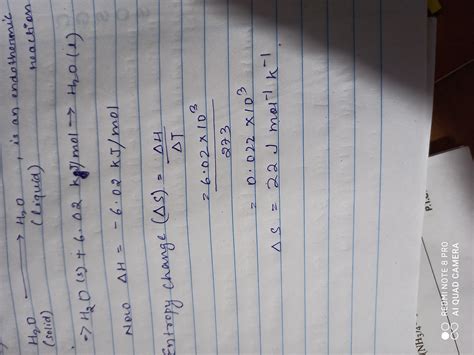 H₂O ⟶ H₂O , is an endothermic
(solid) (liquid) reaction
⇒ H₂O (s) + 6.02 kJ/mol → H₂O (l)
Now ΔH = -6.02 kJ/mol
Entropy change (ΔS) = ΔH
ΔT
= 6.02 × 10³
273
= 0.022 × 10³
ΔS = 22 J mol⁻¹ k⁻¹
REDMI NOTE 8 PRO
AI QUAD CAMERA